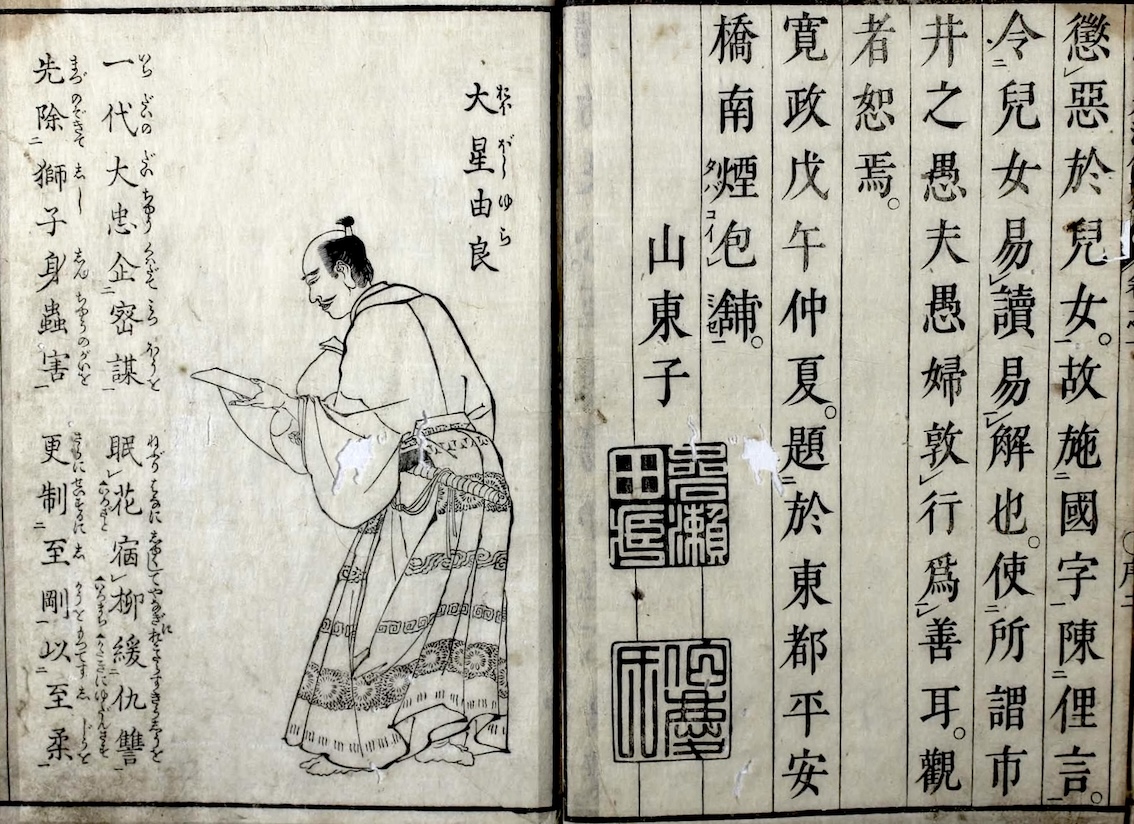 懲惡於兒女。故施國字陳俚言。
令兒女易讀易解也。使所謂市
井之愚夫愚婦敦行爲善耳。觀
者恕焉。
寛政戊午仲夏。題於東都平安
橋南煙包舖。
山東子
大星由良
一代大忠企密謀 眠花宿柳緩仇讐
先除獅子身蟲害 更制至剛以至柔